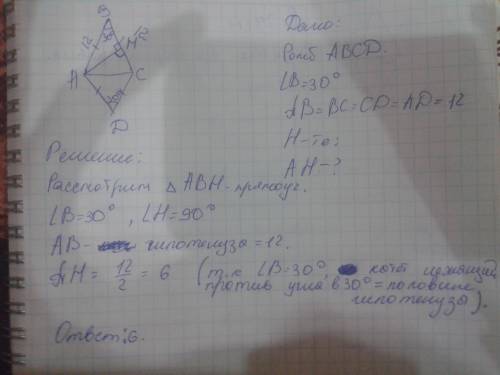 B
12
30
H
12
A
C
30°
D
Дано:
Ромб ABCD.
∠B=30°
AB=BC=CD=AD=12
AH-?
Решение:
Рассмотрим △ ABH-прямоуг.
∠B=30°, ∠H=90°
AB- гипотенуза=12.
AH = 12/2 = 6 (т.к ∠B=30°, кат. лежащий
против угла в 30°=половине
гипотенузы).
Ответ:6.